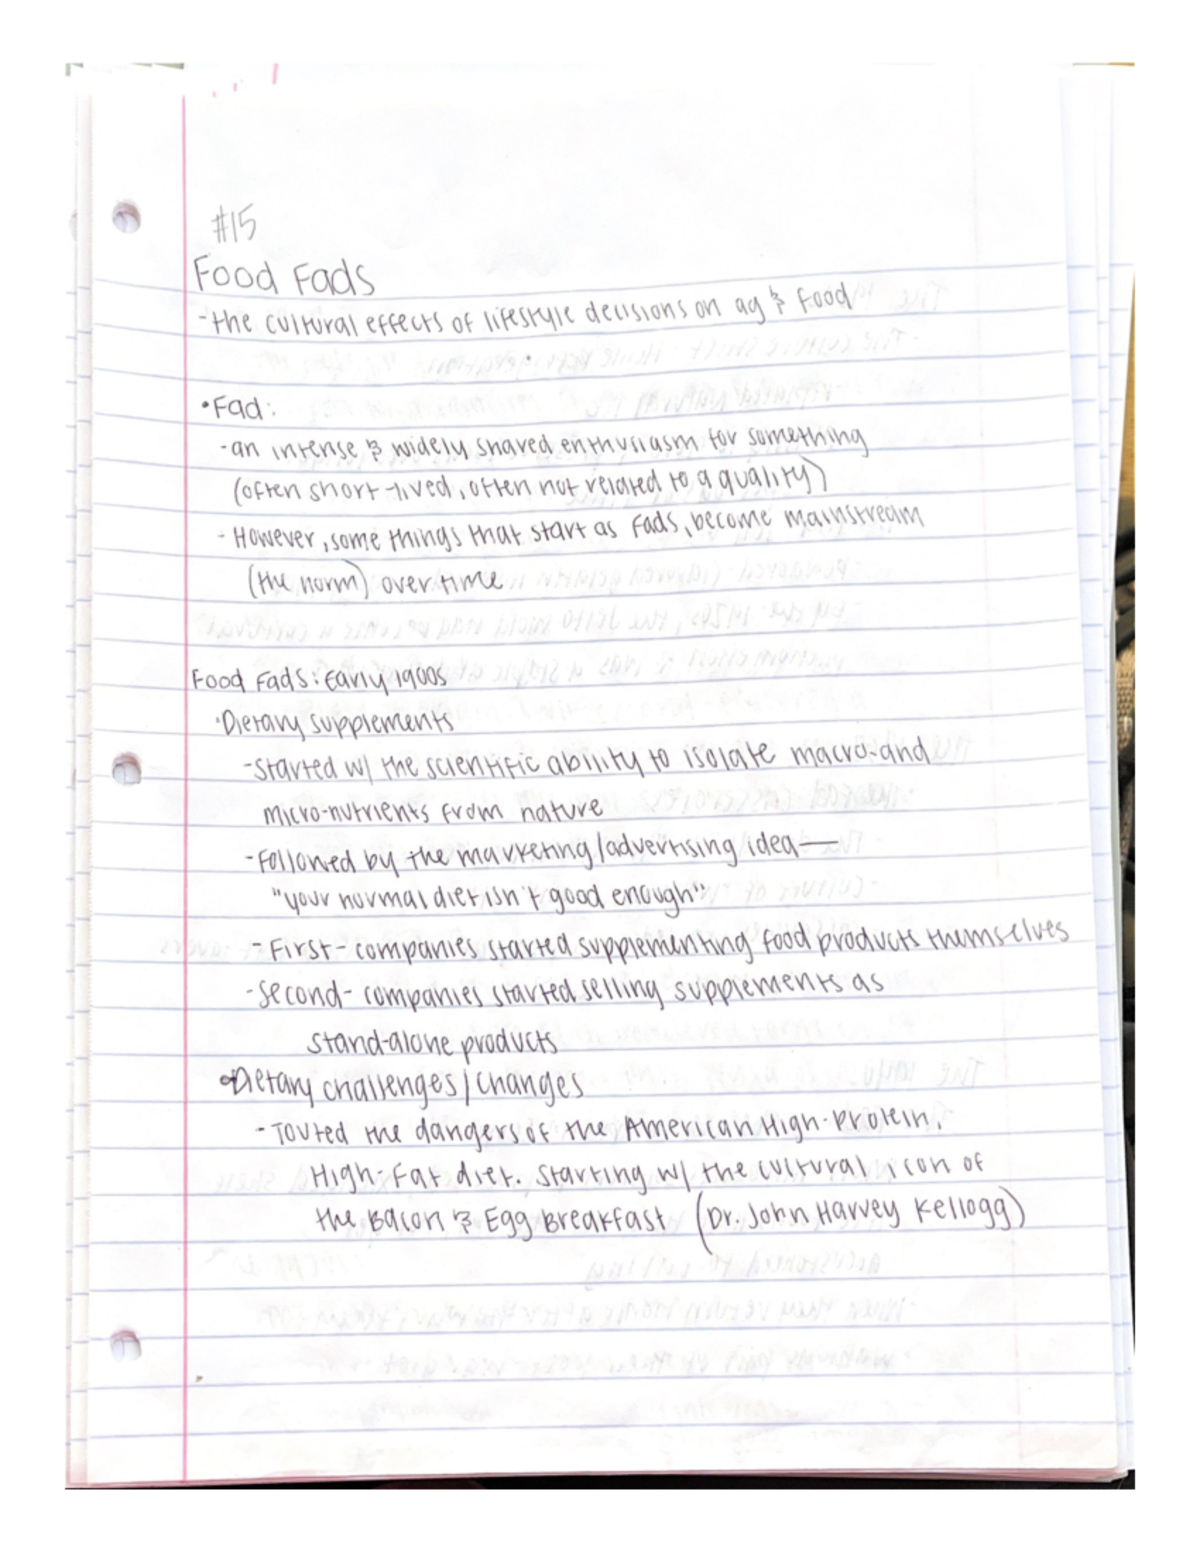 #15
Food Fads
-the cultural effects of lifestyle decisions on ag & food
•Fad:
-an intense & widely shared enthusiasm for something
(often short-lived, often not related to a quality)
- However, some things that start as fads, become mainstream
(the norm) over time
Food Fads: Early 1900s
•Dietary supplements
-Started w/ the scientific ability to isolate macro-and
micro-nutrients from nature
-Followed by the marketing/advertising idea—
"your normal diet isn't good enough"
-First- companies started supplementing food products themselves
-Second- companies started selling supplements as
stand-alone products
•Dietary challenges/changes
-Touted the dangers of the American High-protein,
High-Fat diet. Starting w/ the cultural icon of
the Bacon & Egg Breakfast (Dr. John Harvey Kellogg)